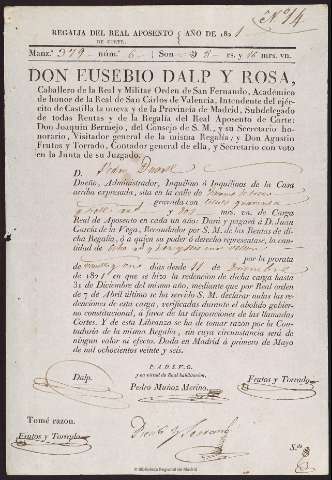 Nº 14
REGALIA DEL REAL APOSENTO AÑO DE 1821
DE CORTE.
Manz.ª 379 núm.º 6 Son rs. y 16 mrs. vn.
DON EUSEBIO DALP Y ROSA,
Caballero de la Real y Militar Orden de San Fernando, Académico
de honor de la Real de San Carlos de Valencia, Intendente del ejér-
cito de Castilla la nueva y de la Provincia de Madrid, Subdelegado
de todas Rentas y de la Regalía del Real Aposento de Corte:
Don Joaquin Bermejo, del Consejo de S. M., y su Secretario ho-
norario, Visitador general de la misma Regalía; y Don Agustin
Frutos y Torrado, Contador general de ella, y Secretario con voto
en la Junta de su Juzgado.
D.
Dueño, Administrador, Inquilino ó Inquilinos de la Casa
arriba expresada, sita en la calle de
gravada con
mrs. vn. de Carga
Real de Aposento en cada un año: Dará y pagará á D. Juan
García de la Vega, Recaudador por S. M. de las Rentas de di-
cha Regalía, ó á quien su poder ó derecho represntase, la can-
tidad de
por la prorata
de dias desde 11 de
de 1821 en que se hizo la redencion de dicha carga hasta
31 de Diciembre del mismo año, mediante que por Real orden
de 7 de Abril último se ha servido S. M. declarar nulas las re-
denciones de esta carga, verificadas durante el abolido gobier-
no constitucional, á favor de las disposiciones de las llamadas
Cortes. Y de esta Libranza se ha de tomar razon por la Con-
taduría de la misma Regalía, en cuya circunstancia será de
ningun valor ni efecto. Dada en Madrid á primero de Mayo
de mil ochocientos veinte y seis.
P. A. D. S. V. G.
y en virtud de Real habilitacion,
Dalp. Pedro Muñoz Merino. Frutos y Torrado
Tomé razon.
Frutos y Torrado
© Biblioteca Regional de Madrid